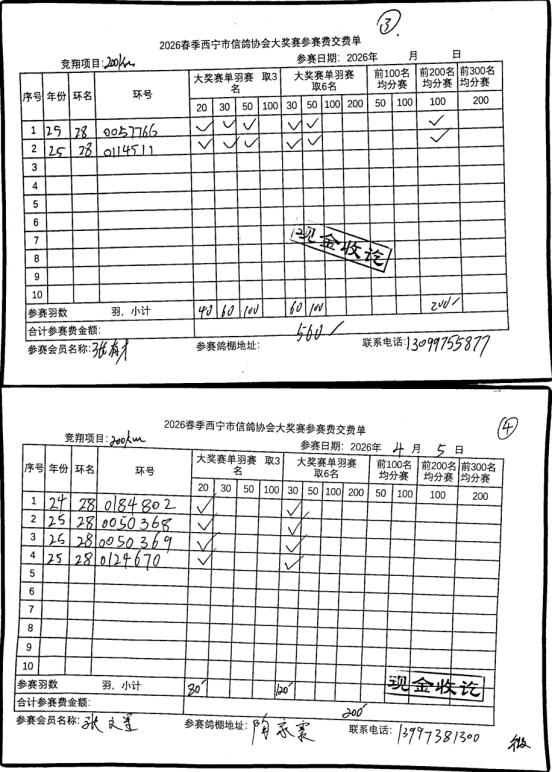 ③
2026春季西宁市信鸽协会大奖赛参赛费交费单
竞翔项目:200km 参赛日期: 2026年 月 日
序号 年份 环名 环号 大奖赛单羽赛 取3名 大奖赛单羽赛 取6名 前100名均分赛 前200名均分赛 前300名均分赛
20 30 50 100 30 50 100 200 50 100 100 200
1 25 28 0057766 ✓ ✓ ✓ ✓ ✓ ✓
2 25 28 0114511 ✓ ✓ ✓ ✓ ✓ ✓
3
4
5
6
7
8
9
10
现金收讫
参赛羽数 羽, 小计 40 60 100 60 100 200
合计参赛费金额: 560
参赛会员名称: 张 参赛鸽棚地址: 联系电话:13099755877
④
2026春季西宁市信鸽协会大奖赛参赛费交费单
竞翔项目:200km 参赛日期: 2026年 4 月 5 日
序号 年份 环名 环号 大奖赛单羽赛 取3名 大奖赛单羽赛 取6名 前100名均分赛 前200名均分赛 前300名均分赛
20 30 50 100 30 50 100 200 50 100 100 200
1 24 28 0184802 ✓ ✓
2 25 28 0050368 ✓ ✓
3 25 28 0050369 ✓ ✓
4 25 28 0124670 ✓ ✓
5
6
7
8
9
10
现金收讫
参赛羽数 羽, 小计 80 120
合计参赛费金额: 200
参赛会员名称: 张文 参赛鸽棚地址: 陶 联系电话: 13997381300
微